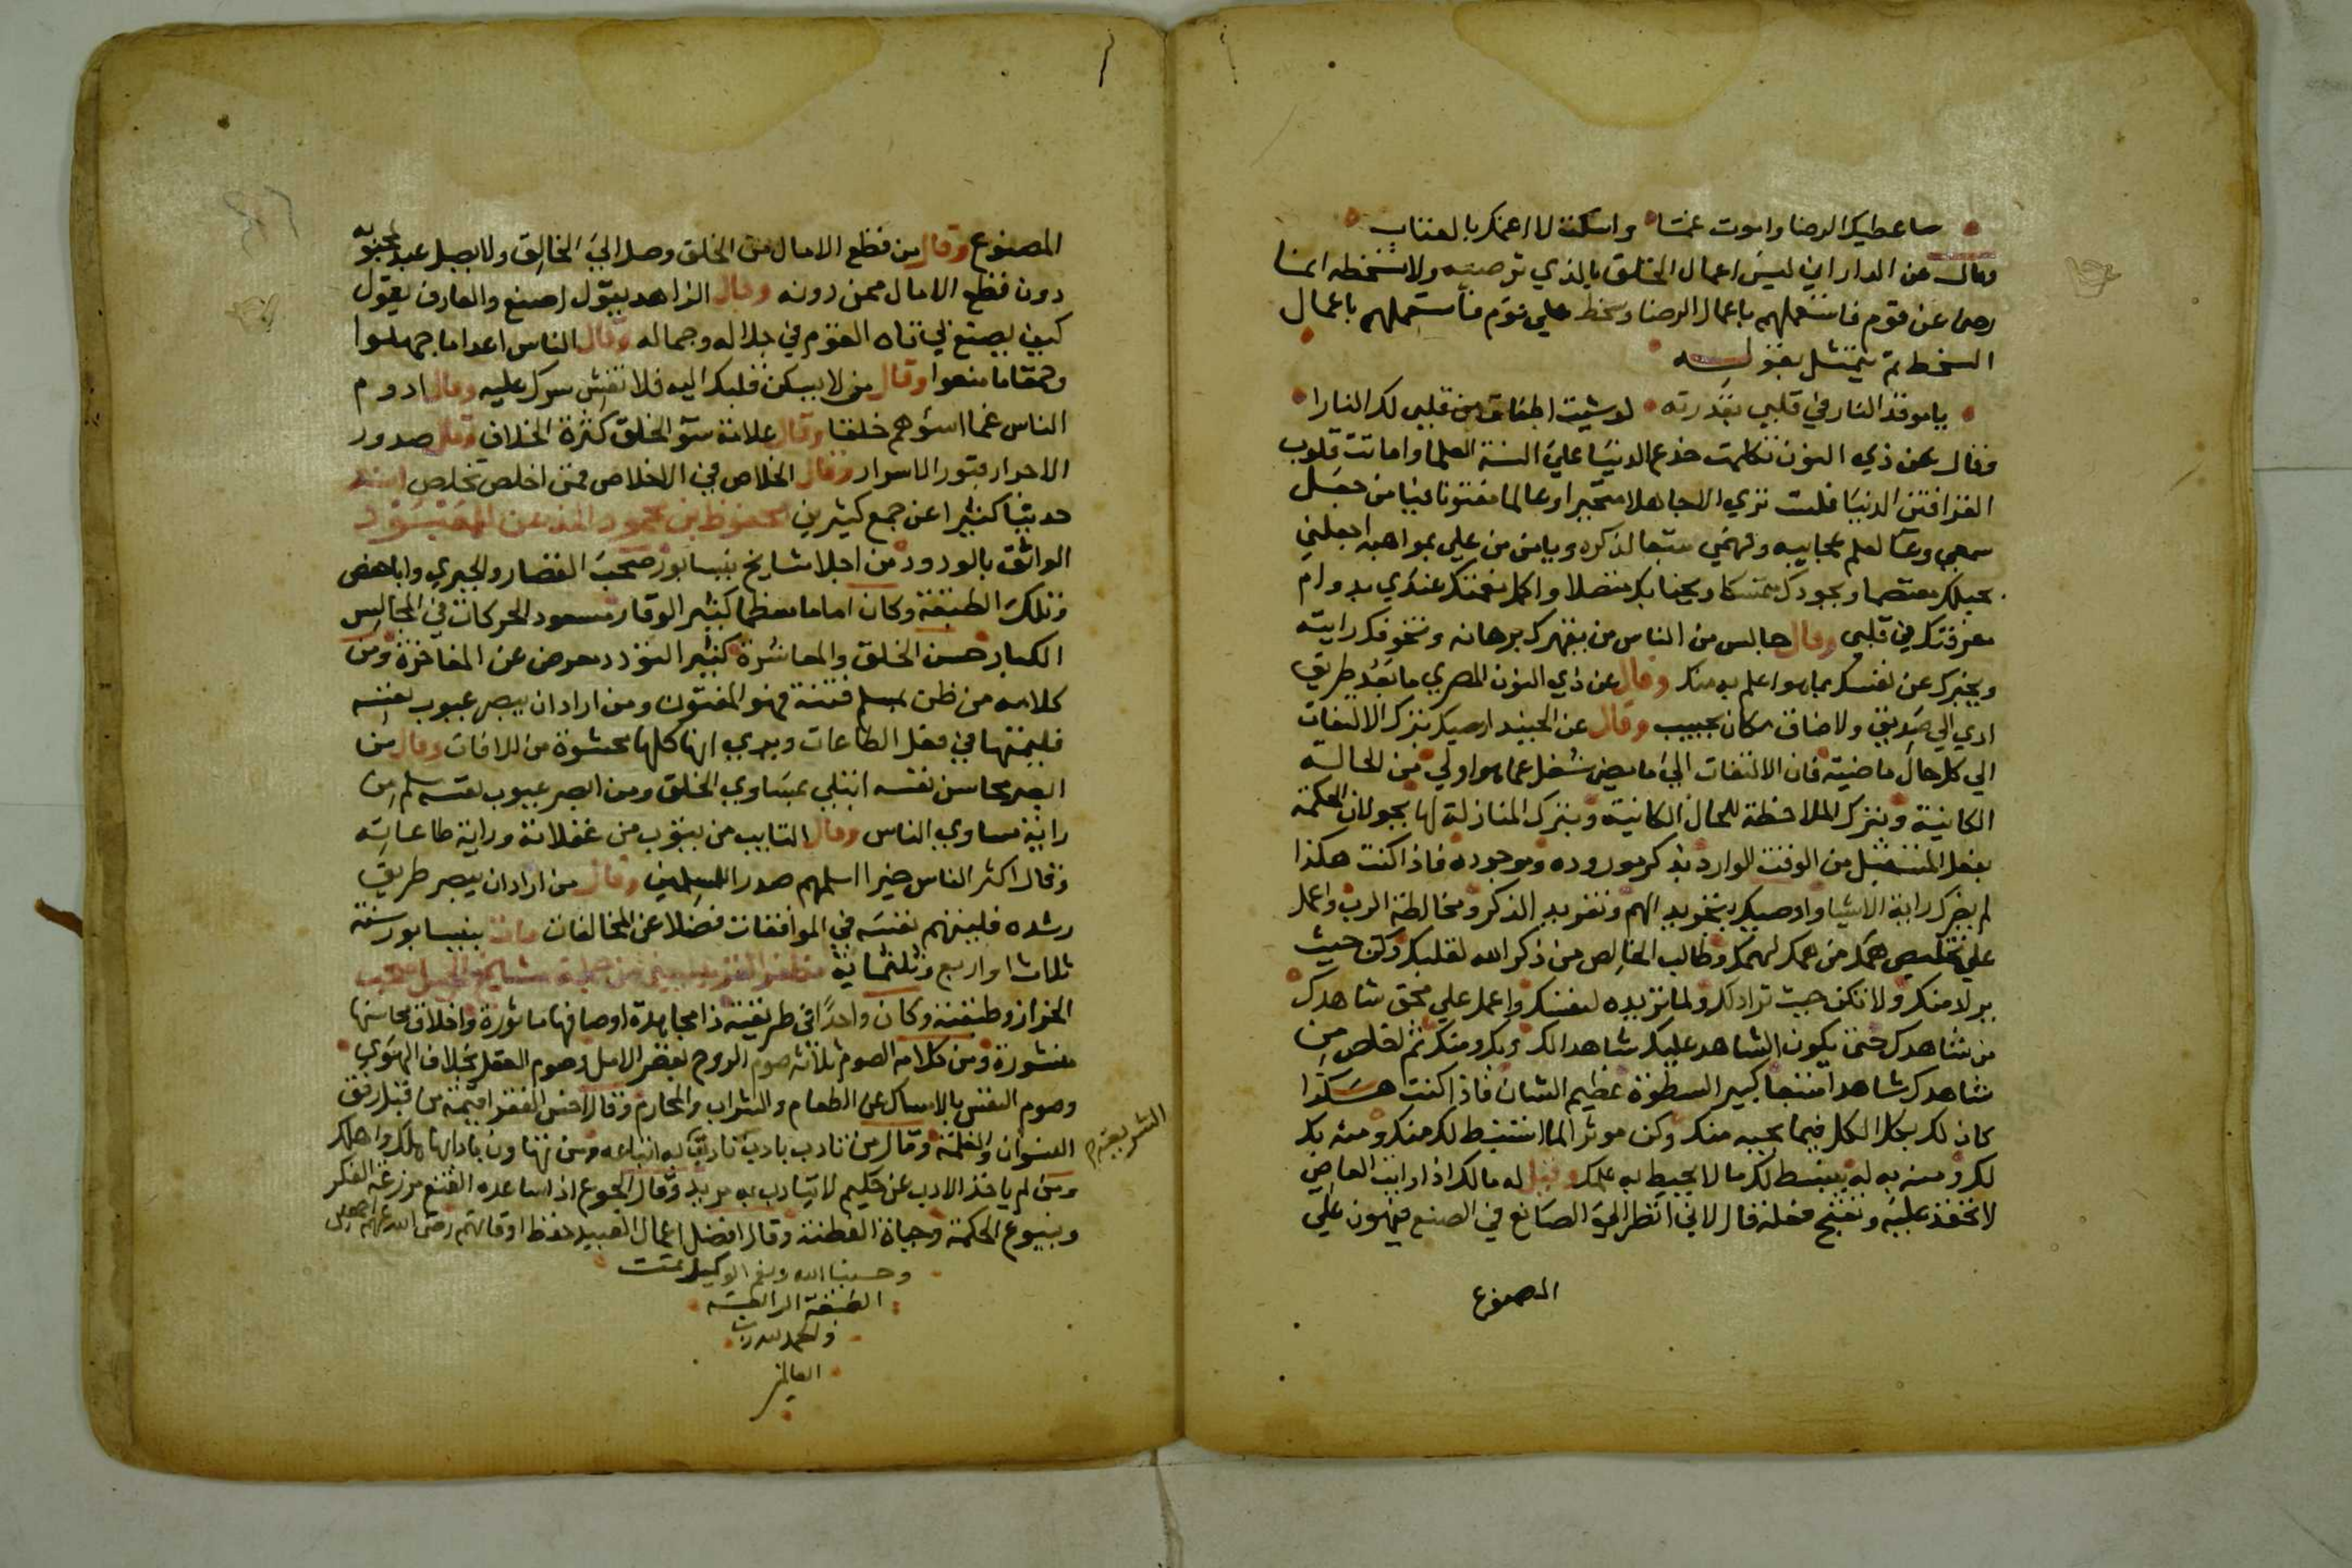 ساعطيك الرضا واموت غمتا واسكت لا اغمك بالعتاب
وقال عن الداراني ليس اعمال الخلق بالذي ترضيه ولا تسخطه انما
رضى عن قوم فاستعملهم باعمال الرضا وسخط على قوم فاستعملهم باعمال
السخط ثم يتمثل بقوله
ياموقد النار في قلبي بقدرته لو شيت اطفات من قلبي لك النارا
وقال عن ذي النون تكلمت خدع الدنيا على السنة العلما واماتت قلوب
القرا فتن الدنيا فلست تري الا جاهلا متحيرا وعالما مفتونا فيا من جعل
سمعي وعا لعلم عجايبه وفهمي متبعا لذكره ويا من من علي بمواهبه اجعلني
بحبلك معتصما وبجودك متمسكا وبحبابك متصلا واكمل نعمتك عندي بدوام
معرفتك في قلبي وقال جالس من الناس من يقهرك برهانه وتخوفك رايته
ويخبرك عن نفسك بما هو اعلم به منك وقال عن ذي النون المصري ما بعد طريق
ادي الي صديق ولا ضاق مكان بحبيب وقال عن الجنيد اوصيك بترك الالتفات
الي كل حال ماضية فان الالتفات الي ما مضى شغل عما هو اولي من الحالة
الكاينية وبترك الملاحظة للحال الكاينة وبترك المنازلة لها بجولان الحكمة
بفعل المستقبل من الوقت الوارد بذكر موروده وموجوده فاذا كنت هكذا
لم يضرك راية الاشيا واوصيك بتجويد الهم وتفريد الذكر ومخالطة الرب واعمل
علي تخليص همك من همك لهمك وطالب الخالص من ذكر الله لقلبك وكن حيث
يراد منك ولا تكن حيث تراد لك ولما تريده لنفسك واعمل علي محق شاهدك
من شاهدك حتى يكون الشاهد عليك شاهدا لك وبك ومنك ثم تخلص من
شاهدك شاهدا كبير السطوة عظيم الشان فاذا كنت هكذا
كان لك بكل الكل فيما يحبه منك وكن موثرا لما انبسط لك منك ومنه بك
لك ومنه به له ينبسط لك ما لا يحيط به علمك وقيل له مالك اذا رايت العاصي
لا تحقد عليه وتقبح فعله قال لاني انظر الى الصانع في الصنع فيهون علي
المصنوع
المصنوع وقال من قطع الامال من الخلق وصل الي الخالق ولا يصل عبد لمحبوبه
دون قطع الامال ممن دونه وقال الزاهد يقول اصنع والعارف يقول
كيف يصنع بي تاه القوم في جلاله وجماله وقال الناس اعدا ما جهلوا
وقال من لا يسكن قلبك اليه فلا تفش سرك عليه وقال ادوم
الناس غما اسؤهم خلقا وقال علامة سؤ الخلق كثرة الخلاف وقال صدور
الاحرار قبور الاسرار وقال الخلاص في الاخلاص فمن اخلص تخلص اسند
حديثا كثيرا عن جمع كثيرين محفوظ بن محمود
الواثق بالودود من اجلا مشايخ نيسابور صحب القصار والجيري وابا حفص
وتلك الطبقة وكان اماما معظما كثير الوقار مسعود الحركات في المجالس
الكبار حسن الخلق والمعاشرة كثير التودد معرض عن المفاخرة ومن
كلامه من ظن بمسلم فتنة فهو المفتون ومن اراد ان يبصر عيوب نفسه
فليتهمها في فعل الطاعات ويدري انها كلها محشوة من الافات وقال من
ابصر محاسن نفسه ابتلي بمساوي الخلق ومن ابصر عيوب نفسه سلم من
راية مساوي الناس وقال التايب من يتوب من غفلاته وراية طاعاته
وقال اكثر الناس خيرا اسلمهم صدر اللمسلمين وقال من اراد ان يبصر طريق
رشده فليتهم نفسه في الموافقات فضلا عن المخالفات مات بنيسابور سنة
ثلاث او اربع وثلثماية
الخراز وطبقته وكان واحدا في طريقته ذا مجاهدة اوصافها ماثورة واخلاق محاسنها
منشورة ومن كلامه الصوم ثلاثه صوم الروح بقصر الامل وصوم العقل بخلاف الهوي
وصوم النفس بالامساك عن الطعام والشراب والمحارم وقال اخس الفقرا قيمة من قبل رفق
النسوان والغلمة وقال من تادب باداب تادب به اتباعه ومن تهاون بادابها هلك واهلك
ومن لم ياخذ الادب عن حكيم لا يتادب به مريد وقال الجوع اذا ساعده القنع مزرعة الفكر
وينبوع الحكمة وحياة الفطنة وقال افضل اعمال العبيد حفظ اوقاتهم رضى الله عنهم اجمعين
وحسبنا الله ونعم الوكيل تمت
الطبقة الرابعة
والحمد لله رب
العالمين
الشريعة